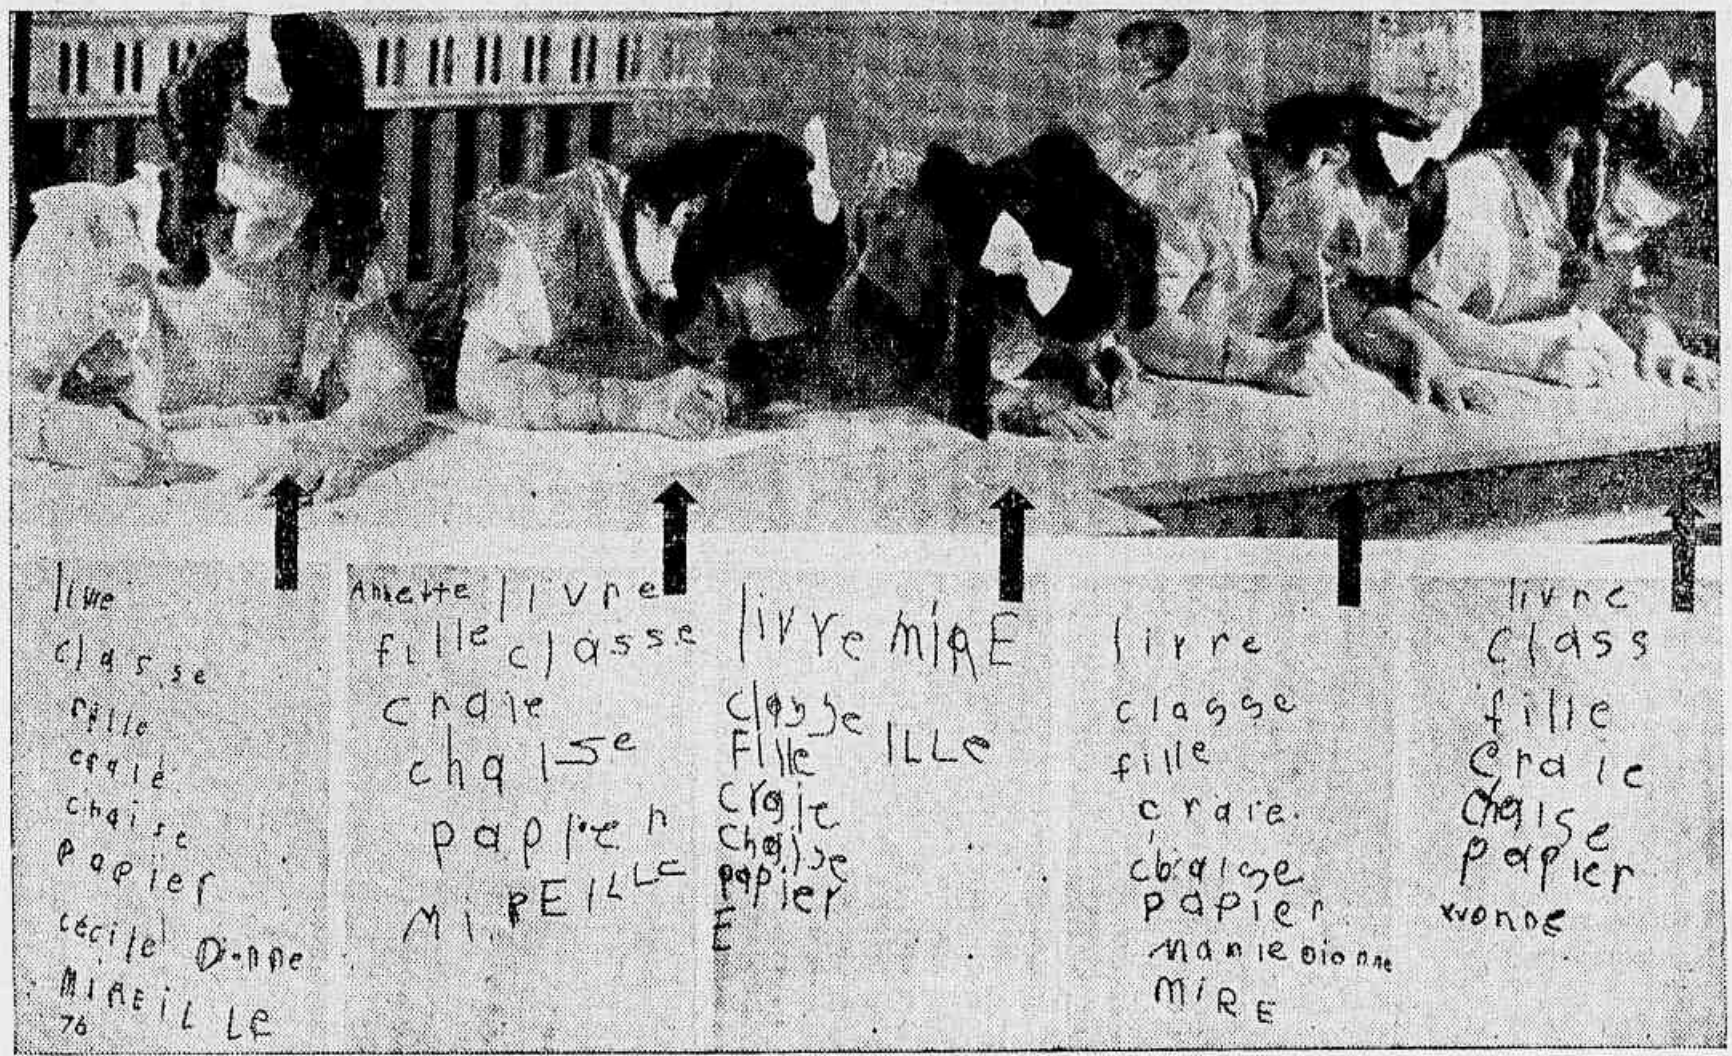 livre
classe
fille
craie
chaise
papier
cécile Dionne
MIREILLE
76
Annette livre
fille classe
craie
chaise
papier
MIREILLE
livre MIRE
classe
Fille ILLe
craie
chaise
papier
E
livre
classe
fille
craie.
chaise
papier
Marie Dionne
MIRE
livre
class
fille
Craie
chaise
papier
yvonne